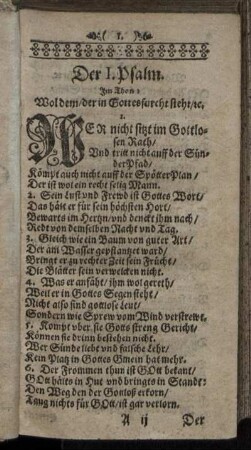 ( 1. )
Der I. Psalm.
Im Thon:
Wol dem / der in Gottesfurcht steht / ꝛc.
1.
WER nicht sitzt im Gottlo-
sen Rath /
Und tritt nicht auff der Sün-
der Pfad /
Kömpt auch nicht auff der Spötter Plan /
Der ist wol ein recht selig Mann.
2. Sein Lust und Frewd ist Gottes Wort /
Das hält er für sein höchsten Hort /
Bewarts im Hertzn / und denckt ihm nach /
Redt von demselben Nacht und Tag.
3. Gleich wie ein Baum von guter Art /
Der am Wasser gepflantzet ward /
Bringt er zu rechter Zeit sein Frücht /
Die Blätter sein verwelcken nicht.
4. Was er anfäht / ihm wol gereth /
Weil er in Gottes Segen steht /
Nicht also sind gottlose Leut /
Sondern wie Sprew vom Wind verstrewt.
5. Kompt vber sie Gotts streng Gericht /
Können sie drinn bestehen nicht.
Wer Sünde liebt und falsche Lehr /
Kein Platz in Gottes Gmein hat mehr.
6. Der Frommen thun ist GOtt bekant /
GOtt hälts in Hut und bringts in Standt:
Den Weg den der Gottloß erkorn /
Taug nichts für GOtt / ist gar verlorn.
A ij Der